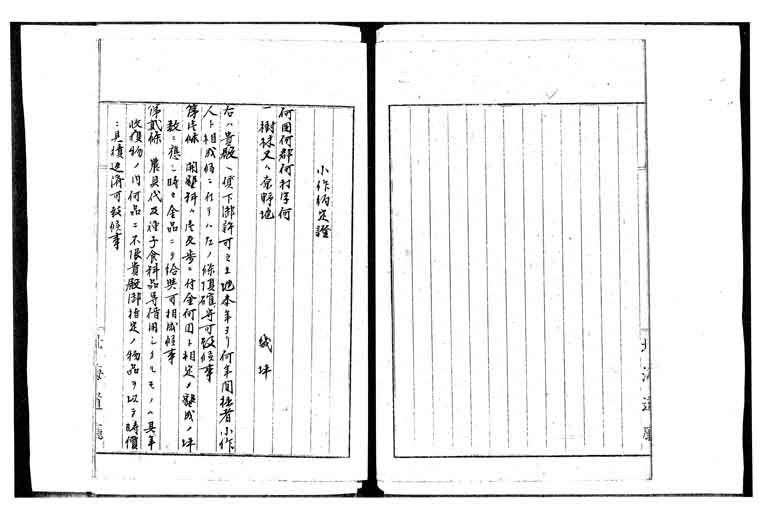 北海道廳
小作約定證
何国何郡何村字何
一樹林又ハ原野地 幾坪
右ハ貴殿ヘ貸下御許可之土地本年ヨリ何年間拙者小作
人ト相成候ニ付テハ左ノ條項確守可致候事
第壱條 開墾料ハ壱反歩ニ付金何円ト相定メ墾成ノ坪
数ニ應シ時々金品ニテ給与可相成候事
第貳條 農具代及種子食料品等借用シタルモノハ其年
収穫物ノ内何品ニ不限貴殿御指定ノ物品ヲ以テ時價
ニ見積返済可致候事
北海道廳